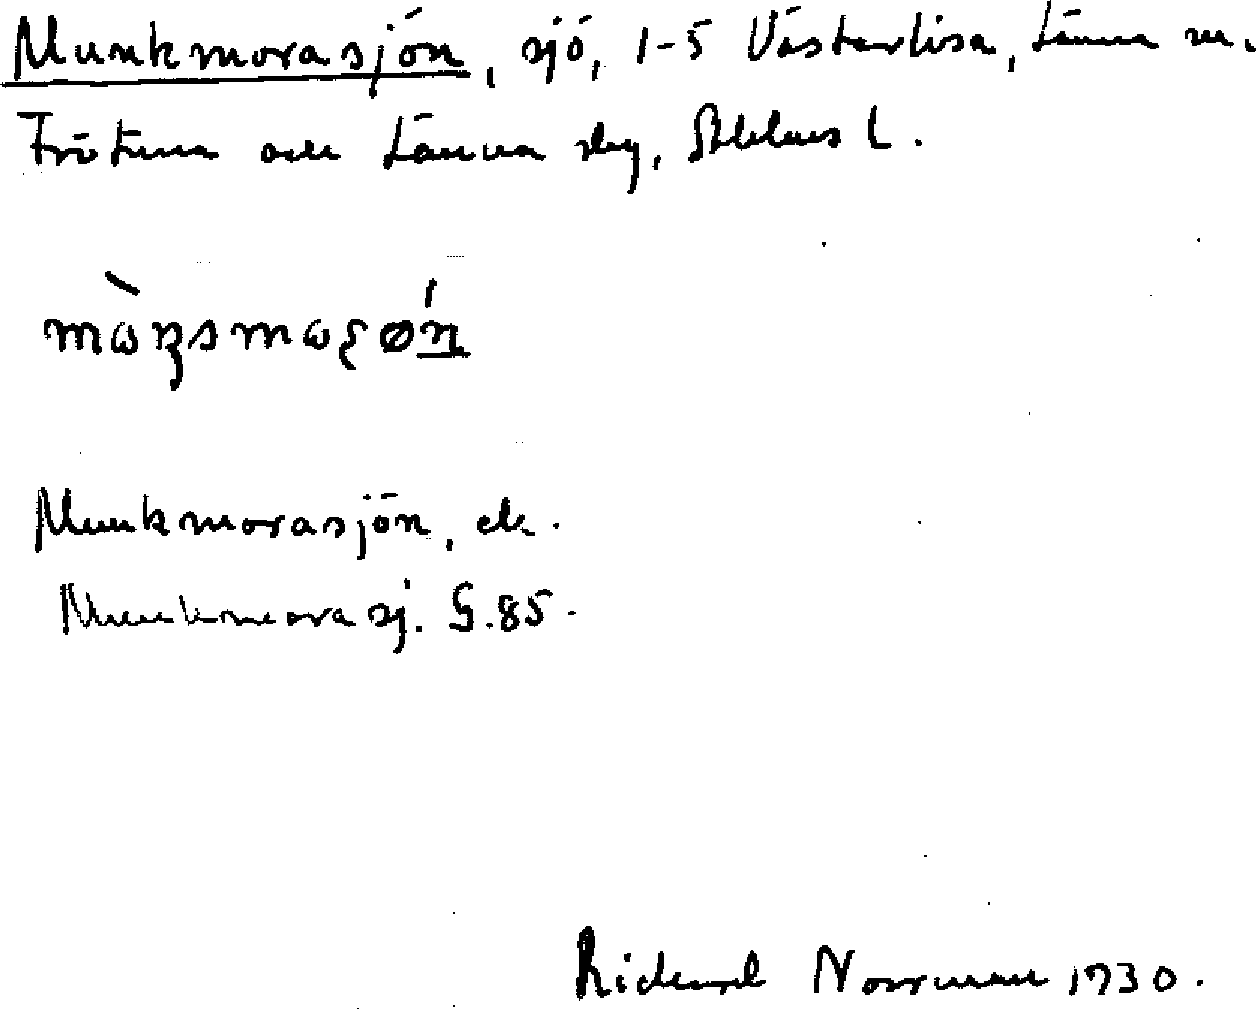 Munkmorasjön, sjö, 1-5 Västerlisa, Länna sn.
Frötuna och Länna skg, Sthlms l.
Munkmorasjön, ek.
Munkmora sj. G.85.
Rickard Norrman 1930.